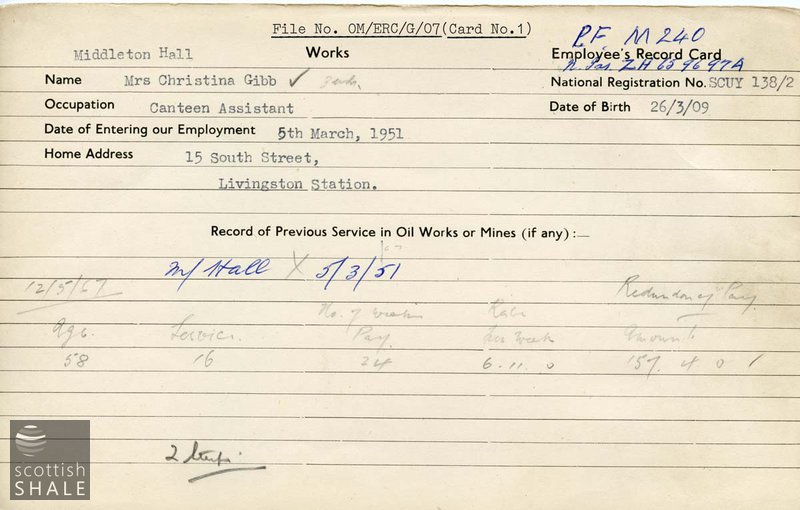 File No. OM/ERC/G/07(Card No.1)
RF M 240
Middleton Hall Works Employee's Record Card
Name Mrs Christina Gibb ✓ National Registration No. SCUY 138/2
Occupation Canteen Assistant Date of Birth 26/3/09
Date of Entering our Employment 5th March, 1951
Home Address 15 South Street,
Livingston Station.
Record of Previous Service in Oil Works or Mines (if any) :—
M/ Hall X 5/3/51
12/5/67 Redundancy Pay
Age. Service. No. of weeks Pay. Rate per week Amount
58 16 24 6. 11. 0 157. 4 0
2
scottish
SHALE